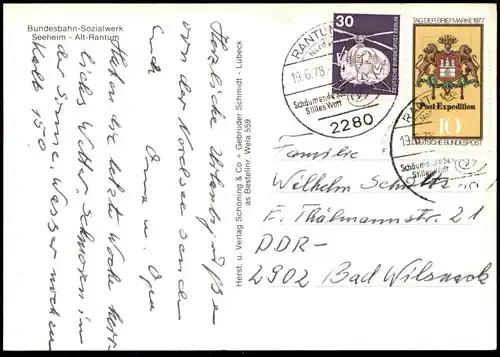 Bundesbahn-Sozialwerk
Seeheim - Alt-Rantum
Herzliche Urlaubsgrüße
von der Nordsee senden
Euch
Oma u. Opa
Haben die letzte Woche herr-
liches Wetter, Schmoren in
der Sonne, Wasser noch
kalt 15°
Herst. u. Verlag Schöning & Co + Gebrüder Schmidt · Lübeck
as Bestellnr. Wela 559
30
DEUTSCHE BUNDESPOST BERLIN
TAG DER BRIEFMARKE 1977
Post-Expedition
10
DEUTSCHE BUNDESPOST
RANTUM
19.6.78
Schäumende See
Stilles Watt
2280
RANTUM
19.
Schäumende See
Stilles Watt
Familie
Wilhelm
E. Thälmannstr. 21
DDR-
2902 Bad Wilsnack